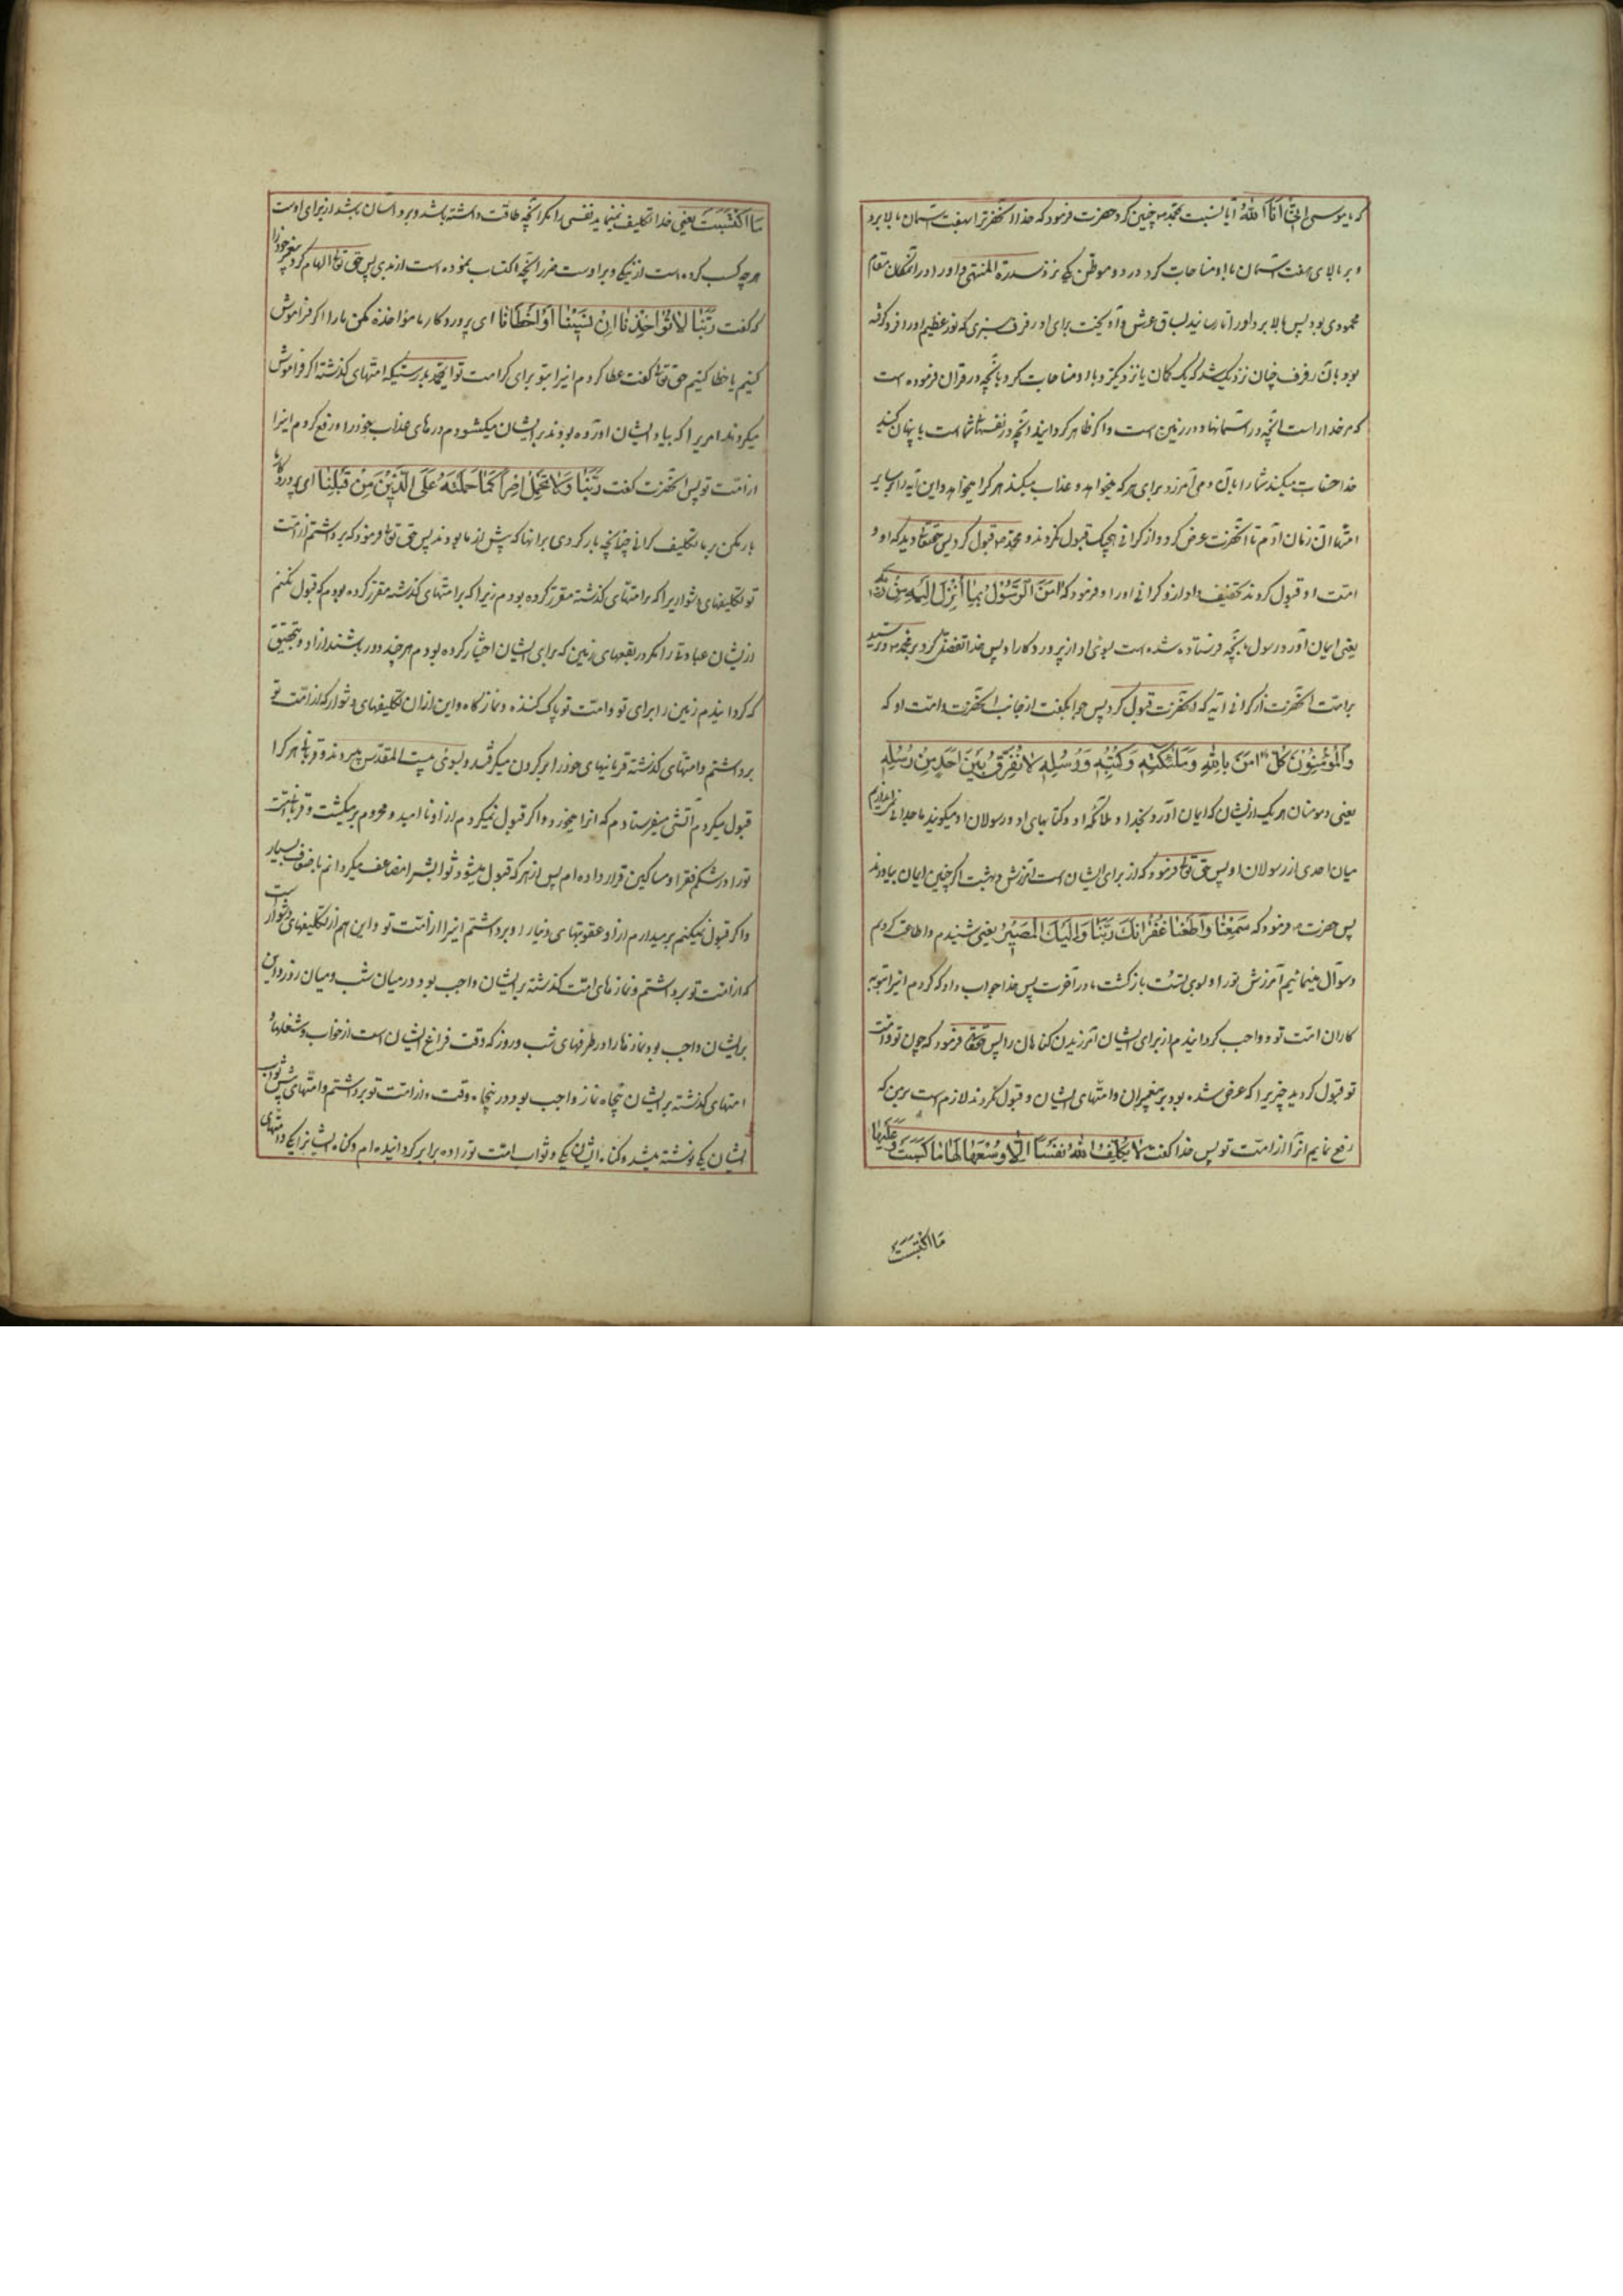 که یا موسی انی انا الله آیا نسبت بمحمد ص چنین کرد حضرت فرمود که خدا آنحضرترا بهفت آسمان بالا برد
و بر بالای هفت آسمان با او مناجات کرد در دو موطن یکی نزد سدرة المنتهی و او را در آنمکان مقام
محمودی بود پس بالا برد او را تا رسانید بساق عرش و آویخت برای او رفرف سبزی که نور عظیم او را فرو گرفته
بود و بآن رفرف چنان نزدیک شد که یک کمان یا نزدیکتر و با او مناجات کرد بآنچه در قرآن فرموده است
که مر خدا راست آنچه در آسمانها و در زمین است و اگر ظاهر گردانید آنچه در نفسهای شما است یا پنهان کنید
خدا حساب میکند شما را بآن و می آمرزد برای هر که میخواهد و عذاب میکند هر که را میخواهد و این آیه را بر سایر
امتها از زمان آدم تا آنحضرت عرض کرد و از گرانی هیچیک قبول نکردند و محمد ص قبول کرد پس حقتعالی دید که او و
امت او قبول کردند تخفیف داد از او گرانی او را و فرمود که امن الرسول بما انزل الیه من ربه
یعنی ایمان آورد رسول بآنچه فرستاده شده است بسوی او از پروردگار او پس خدا تفضل کرد بر محمد ص و ترسید
بر امت آنحضرت از گرانی آیه که آنحضرت قبول کرد پس جواب گفت از جانب آنحضرت و امت او که
والمؤمنون کل امن بالله وملئکته وکتبه ورسله لا نفرق بین احد من رسله
یعنی و مومنان هر یک از ایشان که ایمان آورد بخدا و ملائکه او و کتابهای او و رسولان او میگویند ما جدائی نمی اندازیم
میان احدی از رسولان او پس حق تعالی فرمود که از برای ایشان است آمرزش و بهشت اگر چنین ایمان بیاورند
پس حضرت ص فرمود که سمعنا واطعنا غفرانک ربنا والیک المصیر یعنی شنیدم و اطاعت کردیم
و سوال مینمائیم آمرزش تو را و بسوی تست بازگشت ما در آخرت پس خدا جواب داد که کردم اینرا بتوبه
کاران امت تو و واجب گردانیدم از برای ایشان آمرزیدن گناهان را پس حقتعالی فرمود که چون تو و امت
تو قبول کردید چیزیرا که عرض شده بود بر پیغمبران و امتهای ایشان و قبول نکردند لازم است بر من که
رفع نمایم آنرا از امت تو پس خدا گفت لا یکلف الله نفسا الا وسعها لها ما کسبت وعلیها
ما اکتسبت
ما اکتسبت یعنی خدا تکلیف نمینماید نفسی را مگر آنچه طاقت داشته باشد و بر او آسان باشد از برای اوست
هر چه کسب کرده است از نیکی و بر اوست ضرر آنچه اکتساب نموده است از بدی پس حق تعالی الهام کرد پیغمبر خود را
که گفت ربنا لا تؤاخذنا ان نسینا او اخطانا ای پروردگار ما مؤاخذه مکن ما را اگر فراموش
کنیم یا خطا کنیم حق تعالی گفت عطا کردم اینرا بتو برای کرامت تو ای محمد بدرستیکه امتهای گذشته اگر فراموش
میکردند امریرا که بیاد ایشان آورده بودند بر ایشان میگشودم درهای عذاب خود را و رفع کردم اینرا
از امت تو پس آنحضرت گفت ربنا ولا تحمل علینا اصرا کما حملته علی الذین من قبلنا ای پروردگار ما
بار مکن بر ما تکلیف گرانی چنانچه بار کردی بر آنها که پیش از ما بودند پس حق تعالی فرمود که برداشتم از امت
تو تکلیفهای دشوار را که بر امتهای گذشته مقرر کرده بودم زیرا که بر امتهای گذشته مقرر کرده بودم که قبول نکنم
از ایشان عبادتی را مگر در بقعهای زمین که برای ایشان اختیار کرده بودم هر چند دور باشند از او و بتحقیق
که گردانیدم زمین را برای تو و امت تو پاک کننده و نمازگاه و این از آن تکلیفهای دشوار که از امت تو
برداشتم و امتهای گذشته قربانیهای خود را بر گردن میگرفتند و بسوی بیت المقدس میبردند و قربانی هر که را
قبول میکردم آتشی میفرستادم که آنرا میخورد و اگر قبول نمیکردم از او ناامید و محروم برمیگشت و قربانی امت
تو را در شکم فقرا و مساکین قرار داده ام پس از هر که قبول میشود ثوابش را مضاعف میگردانم باضعاف بسیار
و اگر قبول نمیکنم برمیدارم از او عقوبتهای دنیا را و برداشتم اینرا از امت تو و این هم از تکلیفهای دشوار است
که از امت تو برداشتم و نمازهای امت گذشته بر ایشان واجب بود در میان شب و میان روز و این
بر ایشان واجب بود نمازها را در طرفهای شب و روز که وقت فراغ ایشان است از خواب و شغلها و
امتهای گذشته بر ایشان پنجاه نماز واجب بود در پنجاه وقت و از امت تو برداشتم و امتهای پیش ثواب
ایشان یکی نوشته میشد و گناه ایشان یکی و ثواب امت تو را ده برابر گردانیده ام و گناه ایشانرا یکی و امتهای